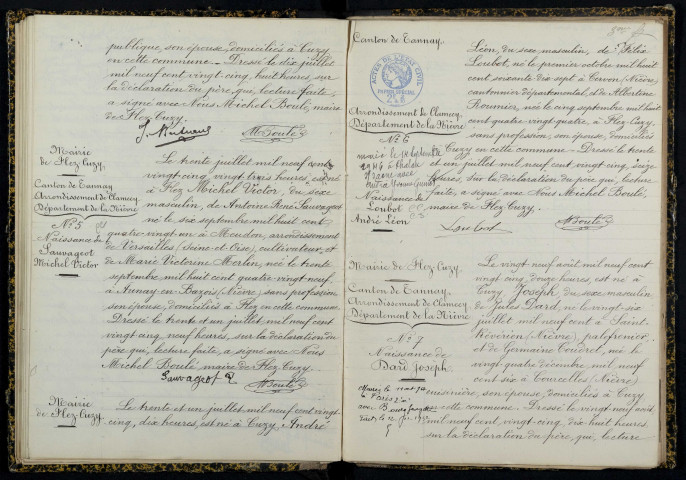 publique, son épouse, domiciliés à Cuzy
en cette commune. Dressé le dix juillet
mil neuf cent vingt cinq, huit heures, sur
la déclaration du père, qui, lecture faite,
a signé avec Nous Michel Boulé, maire
de Flez-Cuzy.
MBoulé
Mairie
de Flez-Cuzy
Canton de Tannay
Arrondissement de Clamecy
Département de la Nièvre
N° 5
Naissance de
Sauvageot
Michel Victor
Le trente juillet mil neuf cent
vingt cinq, vingt trois heures, est né
à Flez Michel Victor, du sexe
masculin, de Antoine René Sauvageot
né le six septembre mil huit cent
quatre vingt un à Meudon, arrondissement
de Versailles (Seine-et-Oise), cultivateur, et
de Marie Victorine Merlin, née le trente
septembre mil huit cent quatre vingt neuf
à Aunay-en-Bazois (Nièvre), sans profession
son épouse, domiciliés à Flez en cette commune
Dressé le trente et un juillet mil neuf cent
vingt cinq, neuf heures, sur la déclaration du
père qui, lecture faite, a signé avec Nous
Michel Boulé maire de Flez-Cuzy.
Sauvageot R
MBoulé
Mairie
de Flez-Cuzy
Le trente et un juillet mil neuf cent vingt
cinq, dix heures, est né à Cuzy, André
Canton de Tannay
ACTES DE L'ETAT CIVIL
PAPIER SPECIAL
Arrondissement de Clamecy
Département de la Nièvre
N° 6
Naissance de
Loubot
André Léon
Léon, du sexe masculin, de Félix
Loubot, né le premier octobre mil huit
cent soixante dix sept à Cervon (Nièvre)
cantonnier départemental, et de Albertine
Roumier, née le cinq septembre mil huit
cent quatre vingt quatre, à Flez-Cuzy,
sans profession, son épouse, domiciliés
à Cuzy en cette commune. Dressé le trente
et un juillet mil neuf cent vingt cinq, seize
heures, sur la déclaration du père, qui, lecture
faite, a signé avec Nous Michel Boulé,
maire de Flez-Cuzy.
Loubot
MBoulé
Mairie de Flez-Cuzy
Canton de Tannay
Arrondissement de Clamecy
Département de la Nièvre
N° 7
Naissance de
Dard Joseph
Le vingt neuf août mil neuf cent
vingt cinq, douze heures, est né à
Cuzy Joseph du sexe masculin
de Jules Dard, né le vingt six
juillet mil neuf cent à Saint-
Révérien (Nièvre) palefrenier,
et de Germaine Coudret, née le
vingt quatre décembre mil neuf
cent six à Tourcelles (Nièvre)
cuisinière, son épouse, domiciliés à Cuzy
en cette commune. Dressé le vingt neuf août,
mil neuf cent vingt cinq, dix huit heures,
sur la déclaration du père, qui, lecture